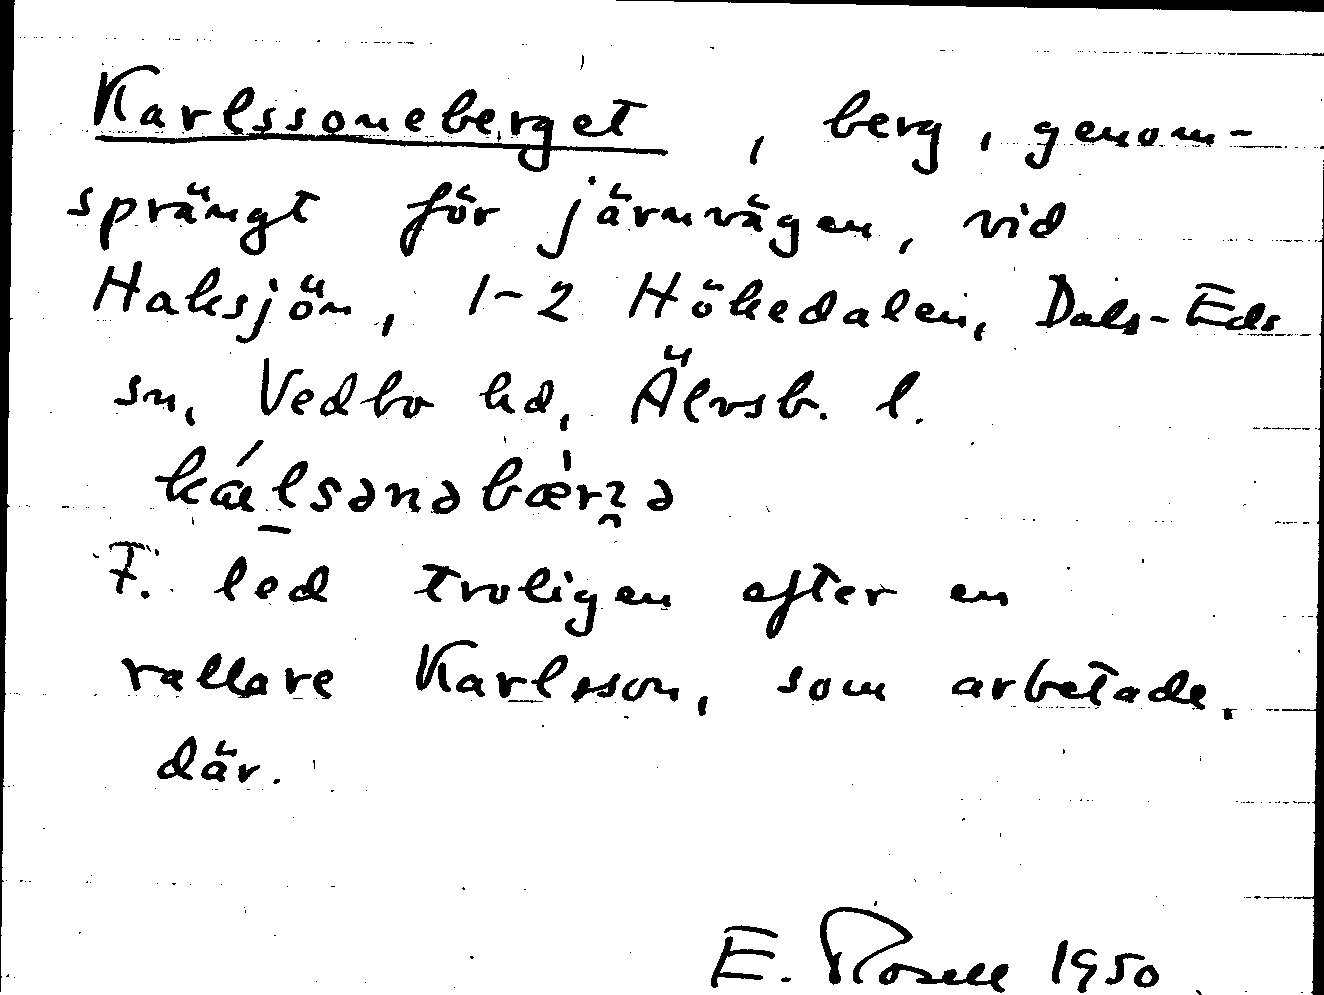 Karlssoneberget, berg, genom-
sprängt för järnvägen, vid
Haksjön, 1-2 Hökedalen, Dals-Eds
sn, Vedbo hd, Älvsb. l.
F. led troligen efter en
rallare Karlsson, som arbetade
där.
E. Rosell 1950